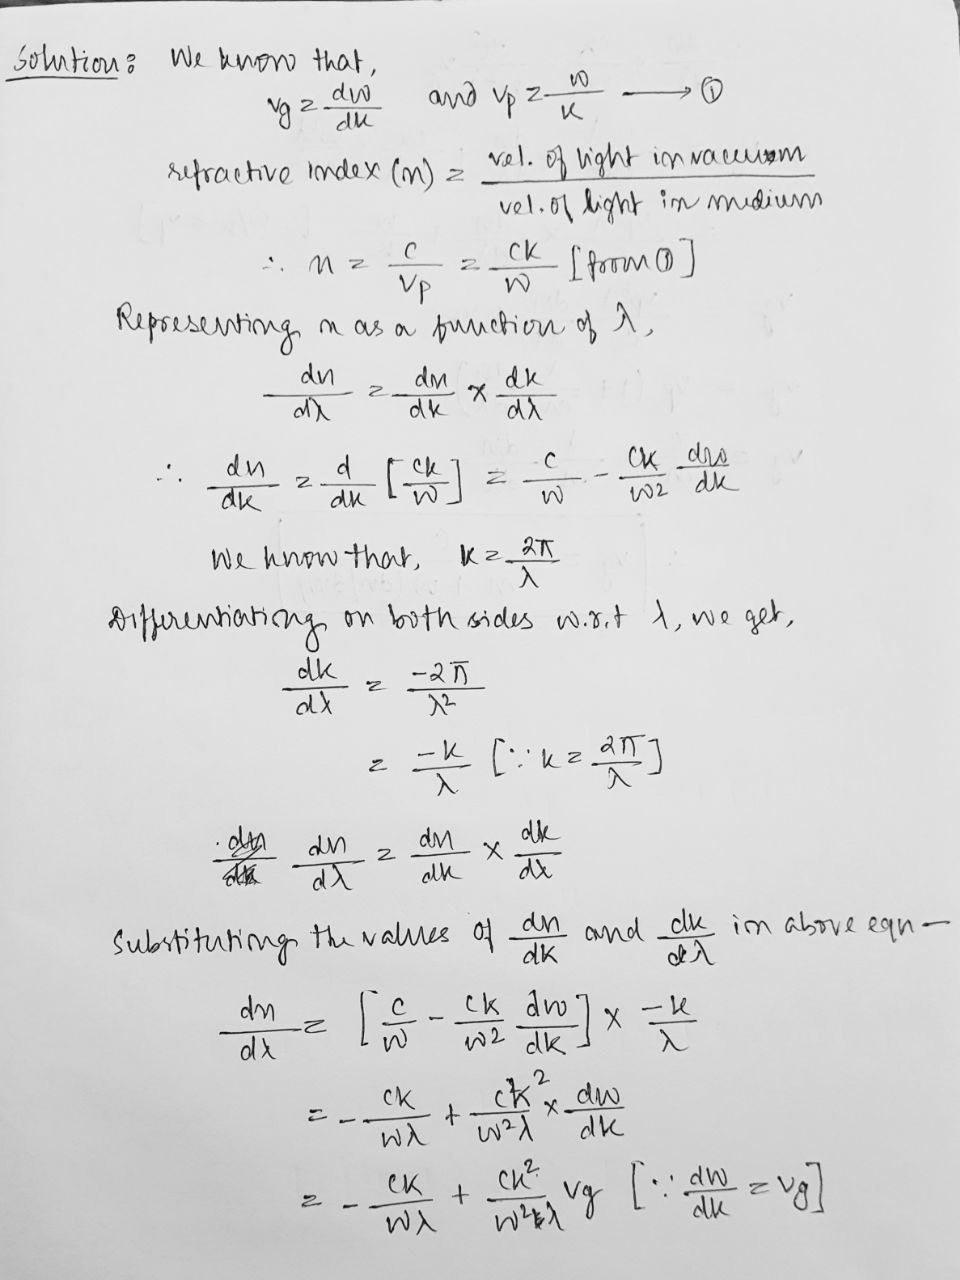 Solution: We know that,
vg = dω/dk and vp = ω/k ⟶ ①
refractive index (n) = vel. of light in vacuum / vel. of light in medium
∴ n = c/vp = ck/ω [from ①]
Representing n as a function of λ,
dn/dλ = dn/dk × dk/dλ
∴ dn/dk = d/dk [ck/ω] = c/ω - ck/ω2 dω/dk
We know that, k = 2π/λ
Differentiating on both sides w.r.t λ, we get,
dk/dλ = -2π/λ²
= -k/λ [∵ k = 2π/λ]
dn/dλ = dn/dk × dk/dλ
Substituting the values of dn/dk and dk/dλ in above eqn -
dn/dλ = [c/ω - ck/ω2 dω/dk] × -k/λ
= - ck/ωλ + ck²/ω²λ × dω/dk
= - ck/ωλ + ck²/ω²λ vg [∵ dω/dk = vg]